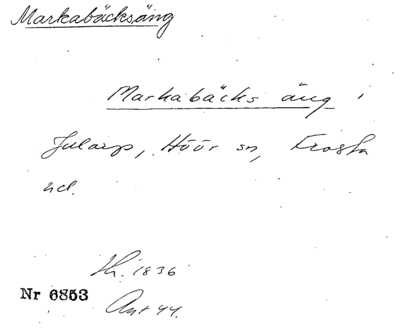 Markabäcksäng
Markabäcks äng i
Jularp, Höör sn, Frosta
hd.
Sk. 1836
Nr 6853
Ant 44.